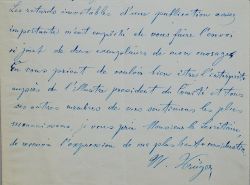 Les retards inévitables d'une publication assez
importante m'ont empêché de vous faire l'envoi
ci joint de deux exemplaires de mon ouvrage.
En vous priant de vouloir bien être l'interprète
auprès de l'illustre président du Comité et tous
ses autres membres de mes sentiments les plus
reconnaissants, je vous prie Monsieur le Secrétaire
de recevoir l'expression de ma plus haute considération